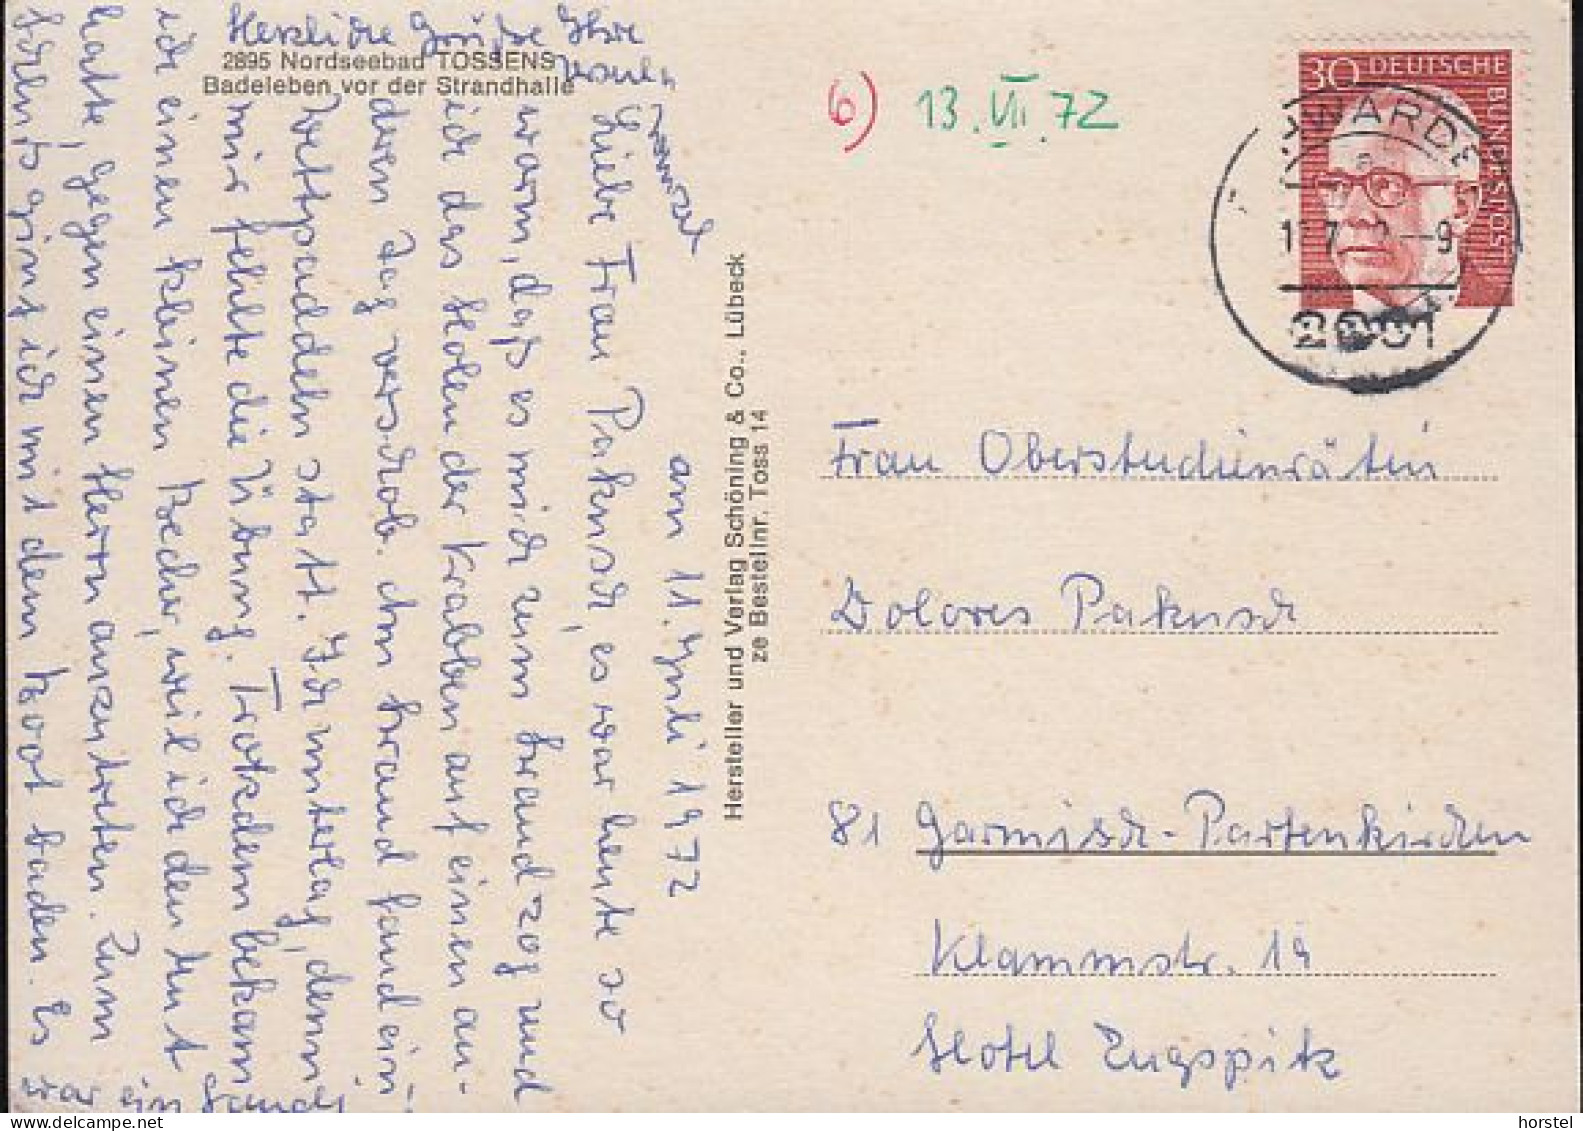 2895 Nordseebad TOSSENS
Badeleben vor der Strandhalle
am 11. Juli 1972
Liebe Frau Pakusch, es war heute so
warm, daß es mich zum Strand zog und
ich das Holen der Krabben auf einen an-
deren Tag verschob. Am Strand fand ein
Wettpaddeln statt. Ich unterlag, denn
mir fehlte die Übung. Trotzdem bekam
ich einen kleinen Becher, weil ich den Mut
hatte, gegen einen Herrn anzutreten. Zum
Schluß ging ich mit dem Boot baden. Es
war ein
Herzliche Grüße Ihre
Hersteller und Verlag Schöning & Co., Lübeck
ze Bestellnr. Toss 14
6) 13. VII. 72
30 DEUTSCHE
BUNDESPOST
Frau Oberstudienrätin
Dolores Pakusch
81 Garmisch-Partenkirchen
Klammstr. 19
Hotel Zugspitz
horstel